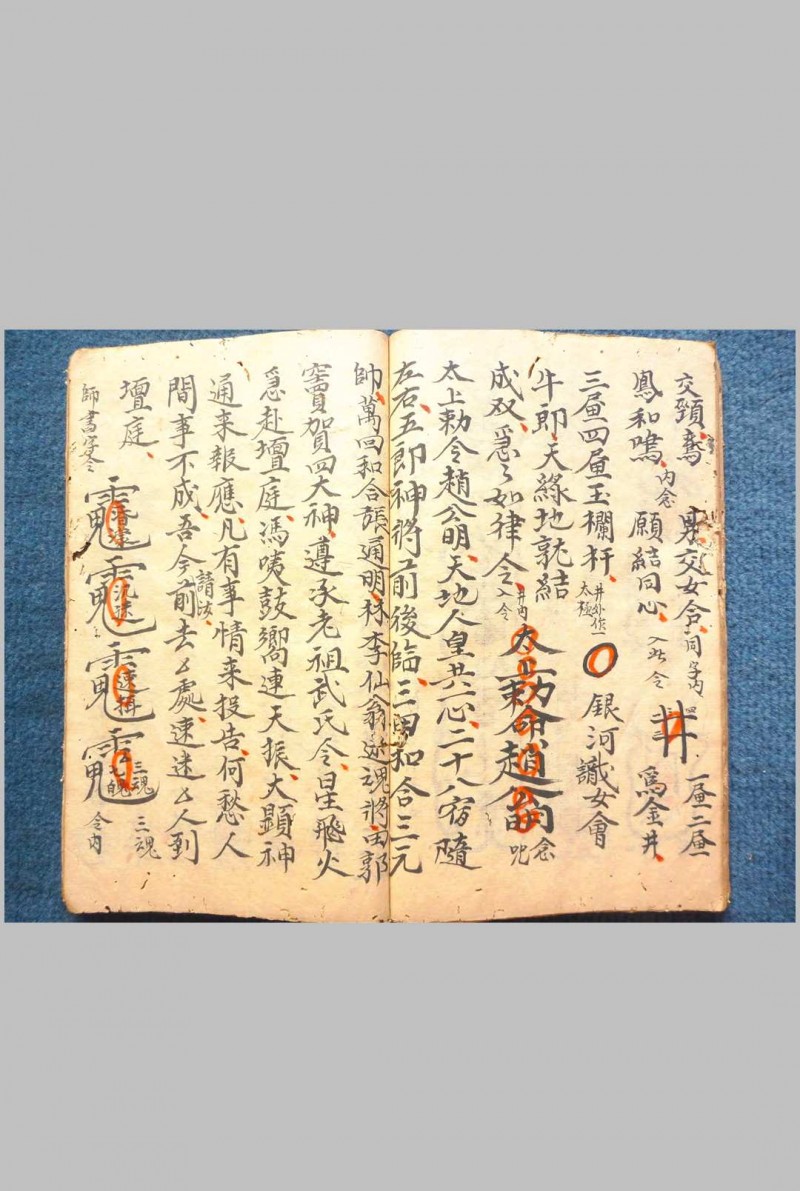 交頸鴦 男交女合 同字內 一层二层
鳳和鳴 內念 願結同心 入此令 井 爲金井
三层四层玉欄杆 井外作一太極 銀河識女會
牛郎 天緣地就結
成双 急々如律令 井內入令 太上勅令趙公明 念咒
太上勅令趙公明 天地人皇共六心 二十八宿隨
左右 五郎神將前後臨 三田和合三元
帥 萬回和合張通明 李仙翁 追魂將 田郭
竇賀四大神 遵承老祖武氏令 星飛火
急赴壇庭 馮咦鼓嚮連天振 大顯神
通来報應 凡有事情来投告 何愁人
間事不成 吾今前去ム處 請法 速迷ム人到
壇庭
師書字令 三魂 七魄 三魂 令內